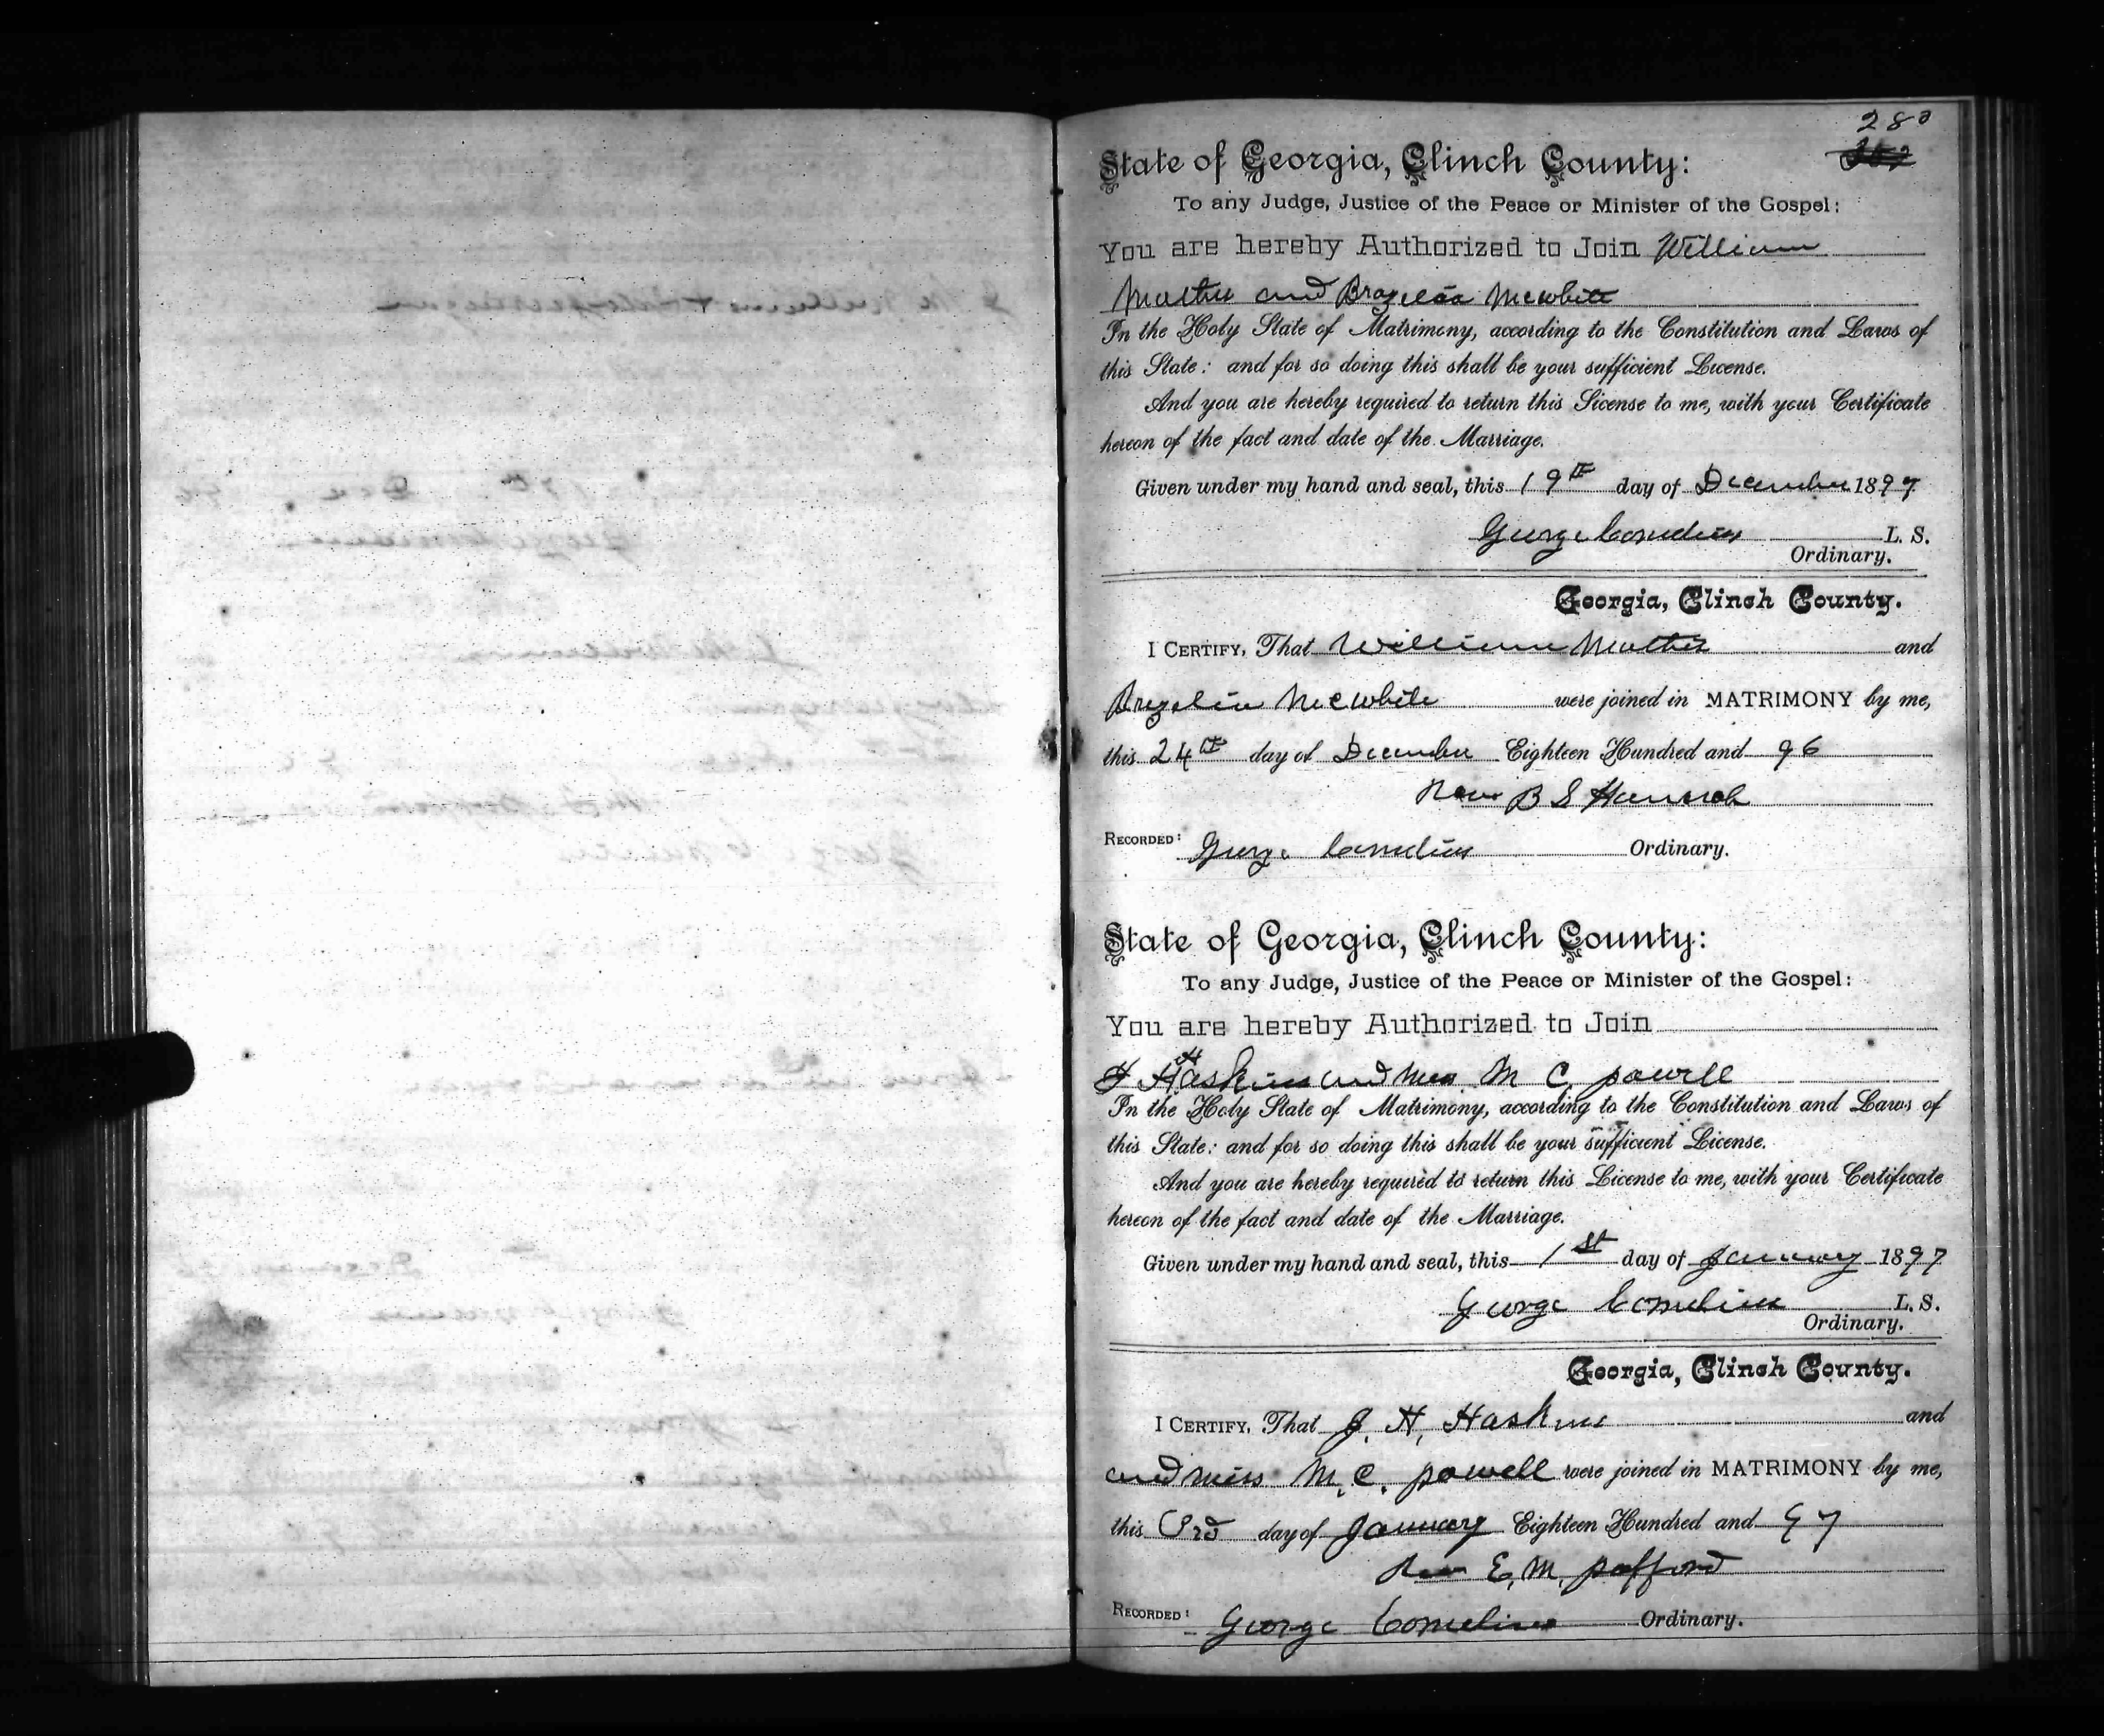 283
State of Georgia, Clinch County:
To any Judge, Justice of the Peace or Minister of the Gospel:
You are hereby Authorized to Join William
and McWhite
In the Holy State of Matrimony, according to the Constitution and Laws of
this State: and for so doing this shall be your sufficient License.
And you are hereby required to return this License to me, with your Certificate
hereon of the fact and date of the Marriage.
Given under my hand and seal, this 19th day of December 1897
George Cornelius L. S.
Ordinary.
Georgia, Clinch County.
I Certify, That William and
McWhite were joined in MATRIMONY by me,
this 24th day of December Eighteen Hundred and 96
Rev B S
Recorded: George Cornelius Ordinary.
State of Georgia, Clinch County:
To any Judge, Justice of the Peace or Minister of the Gospel:
You are hereby Authorized to Join
J H Haskins and Miss M C Powell
In the Holy State of Matrimony, according to the Constitution and Laws of
this State: and for so doing this shall be your sufficient License.
And you are hereby required to return this License to me, with your Certificate
hereon of the fact and date of the Marriage.
Given under my hand and seal, this 1st day of January 1897
George Cornelius L. S.
Ordinary.
Georgia, Clinch County.
I Certify, That J. H. Haskins and
and Miss M. C. Powell were joined in MATRIMONY by me,
this 3rd day of January Eighteen Hundred and 97
Rev E. M. Pafford
Recorded: George Cornelius Ordinary.